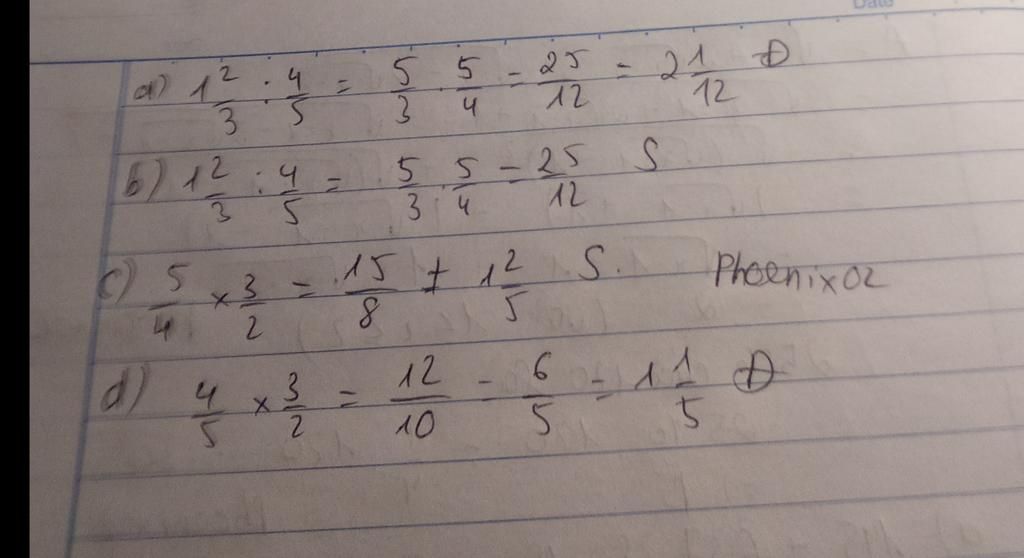 Date
a) 1 2/3 : 4/5 = 5/3 . 5/4 = 25/12 = 2 1/12 Đ
b) 1 2/3 : 4/5 = 5/3 . 5/4 = 25/12 S
c) 5/4 x 3/2 = 15/8 ≠ 1 2/5 S. Phoenix02
d) 4/5 x 3/2 = 12/10 = 6/5 = 1 1/5 Đ